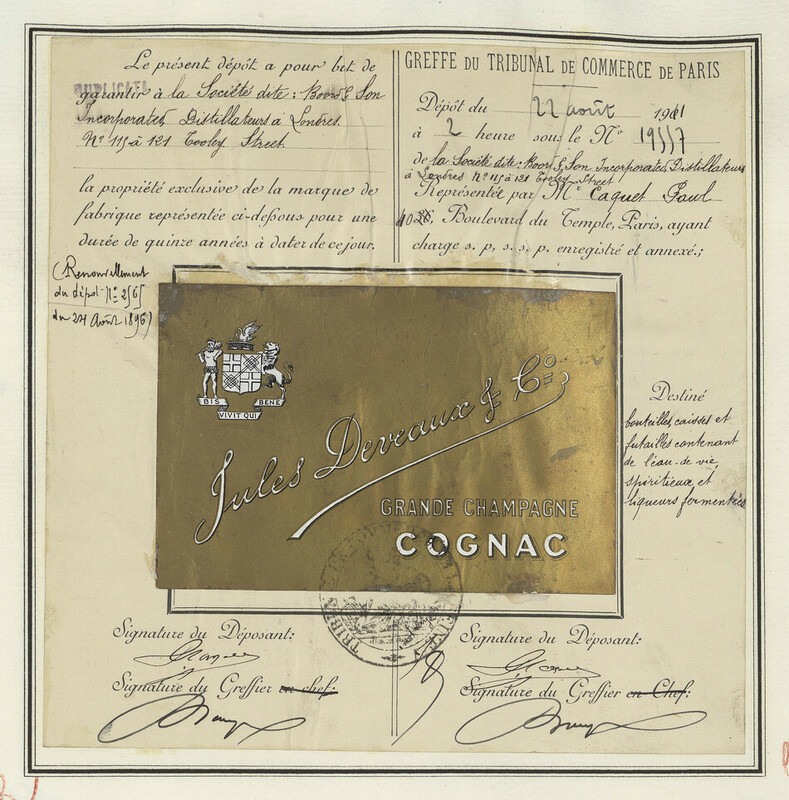 Le présent dépôt a pour but de
DUPLICATA
garantir à la Société dite: Boord & Son
Incorporated, Distillateurs à Londres.
Nº 115 à 121 Tooley Street.
la propriété exclusive de la marque de
fabrique représentée ci-dessous pour une
durée de quinze années à dater de ce jour.
(Renouvellement
du dépôt Nº 2565
du 24 Août 1896)
GREFFE DU TRIBUNAL DE COMMERCE DE PARIS
Dépôt du 22 août 1911
à 2 heure sous le Nº 19557
de la Société dite: Boord & Son Incorporated, Distillateurs
à Londres Nº 115 à 121 Tooley Street
Représentée par Mr Caquet Paul
Boulevard du Temple, Paris, ayant
charge s. p. s. s. p. enregistré et annexé.;
BIS BENE
VIVIT QUI
Jules Deveaux & Co
GRANDE CHAMPAGNE
COGNAC
Destiné
bouteilles, caisses et
futailles contenant
de l'eau-de-vie,
spiritueux et
liqueurs fermentées
Signature du Déposant:
Signature du Greffier en chef:
Signature du Déposant:
Signature du Greffier en Chef: